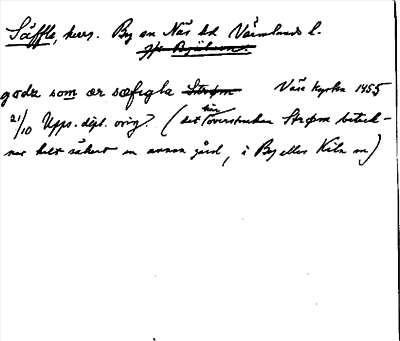 Säffle, hers. By sn Näs hd Värmlands l.
godz som ær sæfægla Strøm Näs kyrka 1455
21/10 Upps. dipl. orig? (det här överstrukna Strøm beteck-
nar helt säkert en annan gård, i By eller Kila sn)